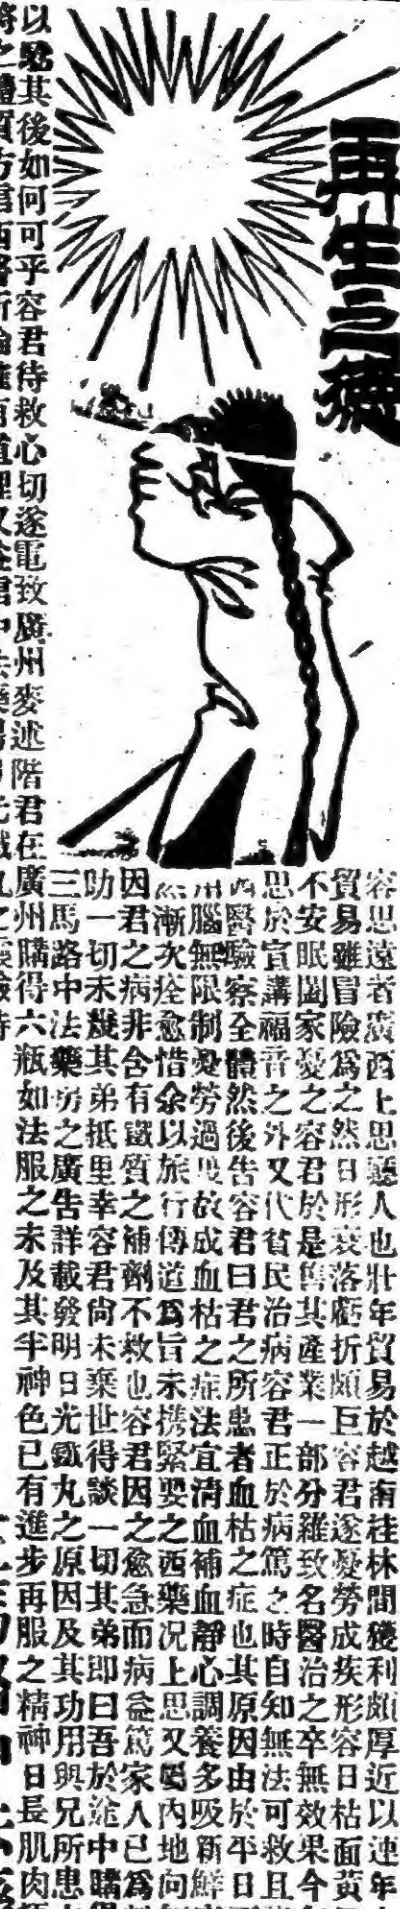 再生之德
容思遠者廣西上思聽人也壯年貿易於越南桂林間獲利頗厚近以連年
貿易雖冒險為之然日形衰落虧折頗巨容君遂憂勞成疾形容日枯面黃
不安眠闔家憂之容君於是售其產業一部分羅致名醫治之卒無效果今
思於宣講福音之外又代貧民治病容君正於病篤之時自知無法可救且
西醫驗察全體然後告容君曰君之所患者血枯之症也其原因由於平日
用腦無限制憂勞過度故成血枯之症法宜清血補血靜心調養多吸新鮮
漸次痊愈惜余以旅行傳道為旨未携緊要之西藥况上思又屬內地向
因君之病非含有鐵質之補劑不救也容君因之愈急而病益篤家人已為
助一切未幾其弟抵里幸容君尙未棄世得談一切其弟即曰吾於途中購
三馬路中法藥房之廣告詳載發明日光鐵丸之原因及其功用與兄所患
以驗其後如何可乎容君待救心切遂電致廣州麥述階君在廣州購得六瓶如法服之未及其半神色已有進步再服之精神日長肌肉